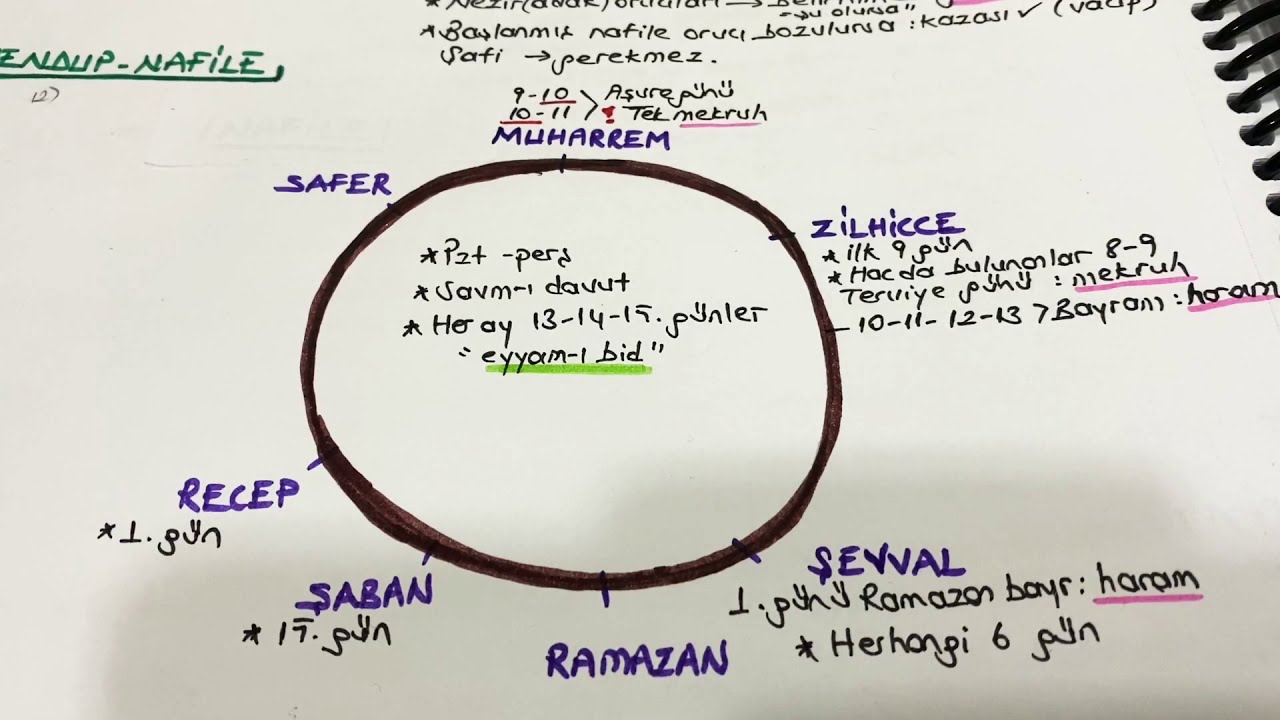 * Nezir (adak) oruçları →
"şu olursa"
* Başlanmış nafile orucu bozulursa : kazası ✓ (vacip)
Şafi → gerekmez.
MENDUP-NAFİLE
9-10 > Aşure günü
10-11 ! Tek mekruh
MUHARREM
SAFER
ZİLHİCCE
* ilk 9 gün
* Hacda bulunanlar 8-9
Terviye günü : mekruh
- 10-11-12-13 > Bayram : haram
* Pzt - perş
* Savm-ı davut
* Her ay 13-14-15. günler
"eyyam-ı bid"
RECEP
* 1. gün
ŞABAN
* 15. gün
RAMAZAN
ŞEVVAL
1. günü Ramazan bayr: haram
* Herhangi 6 gün